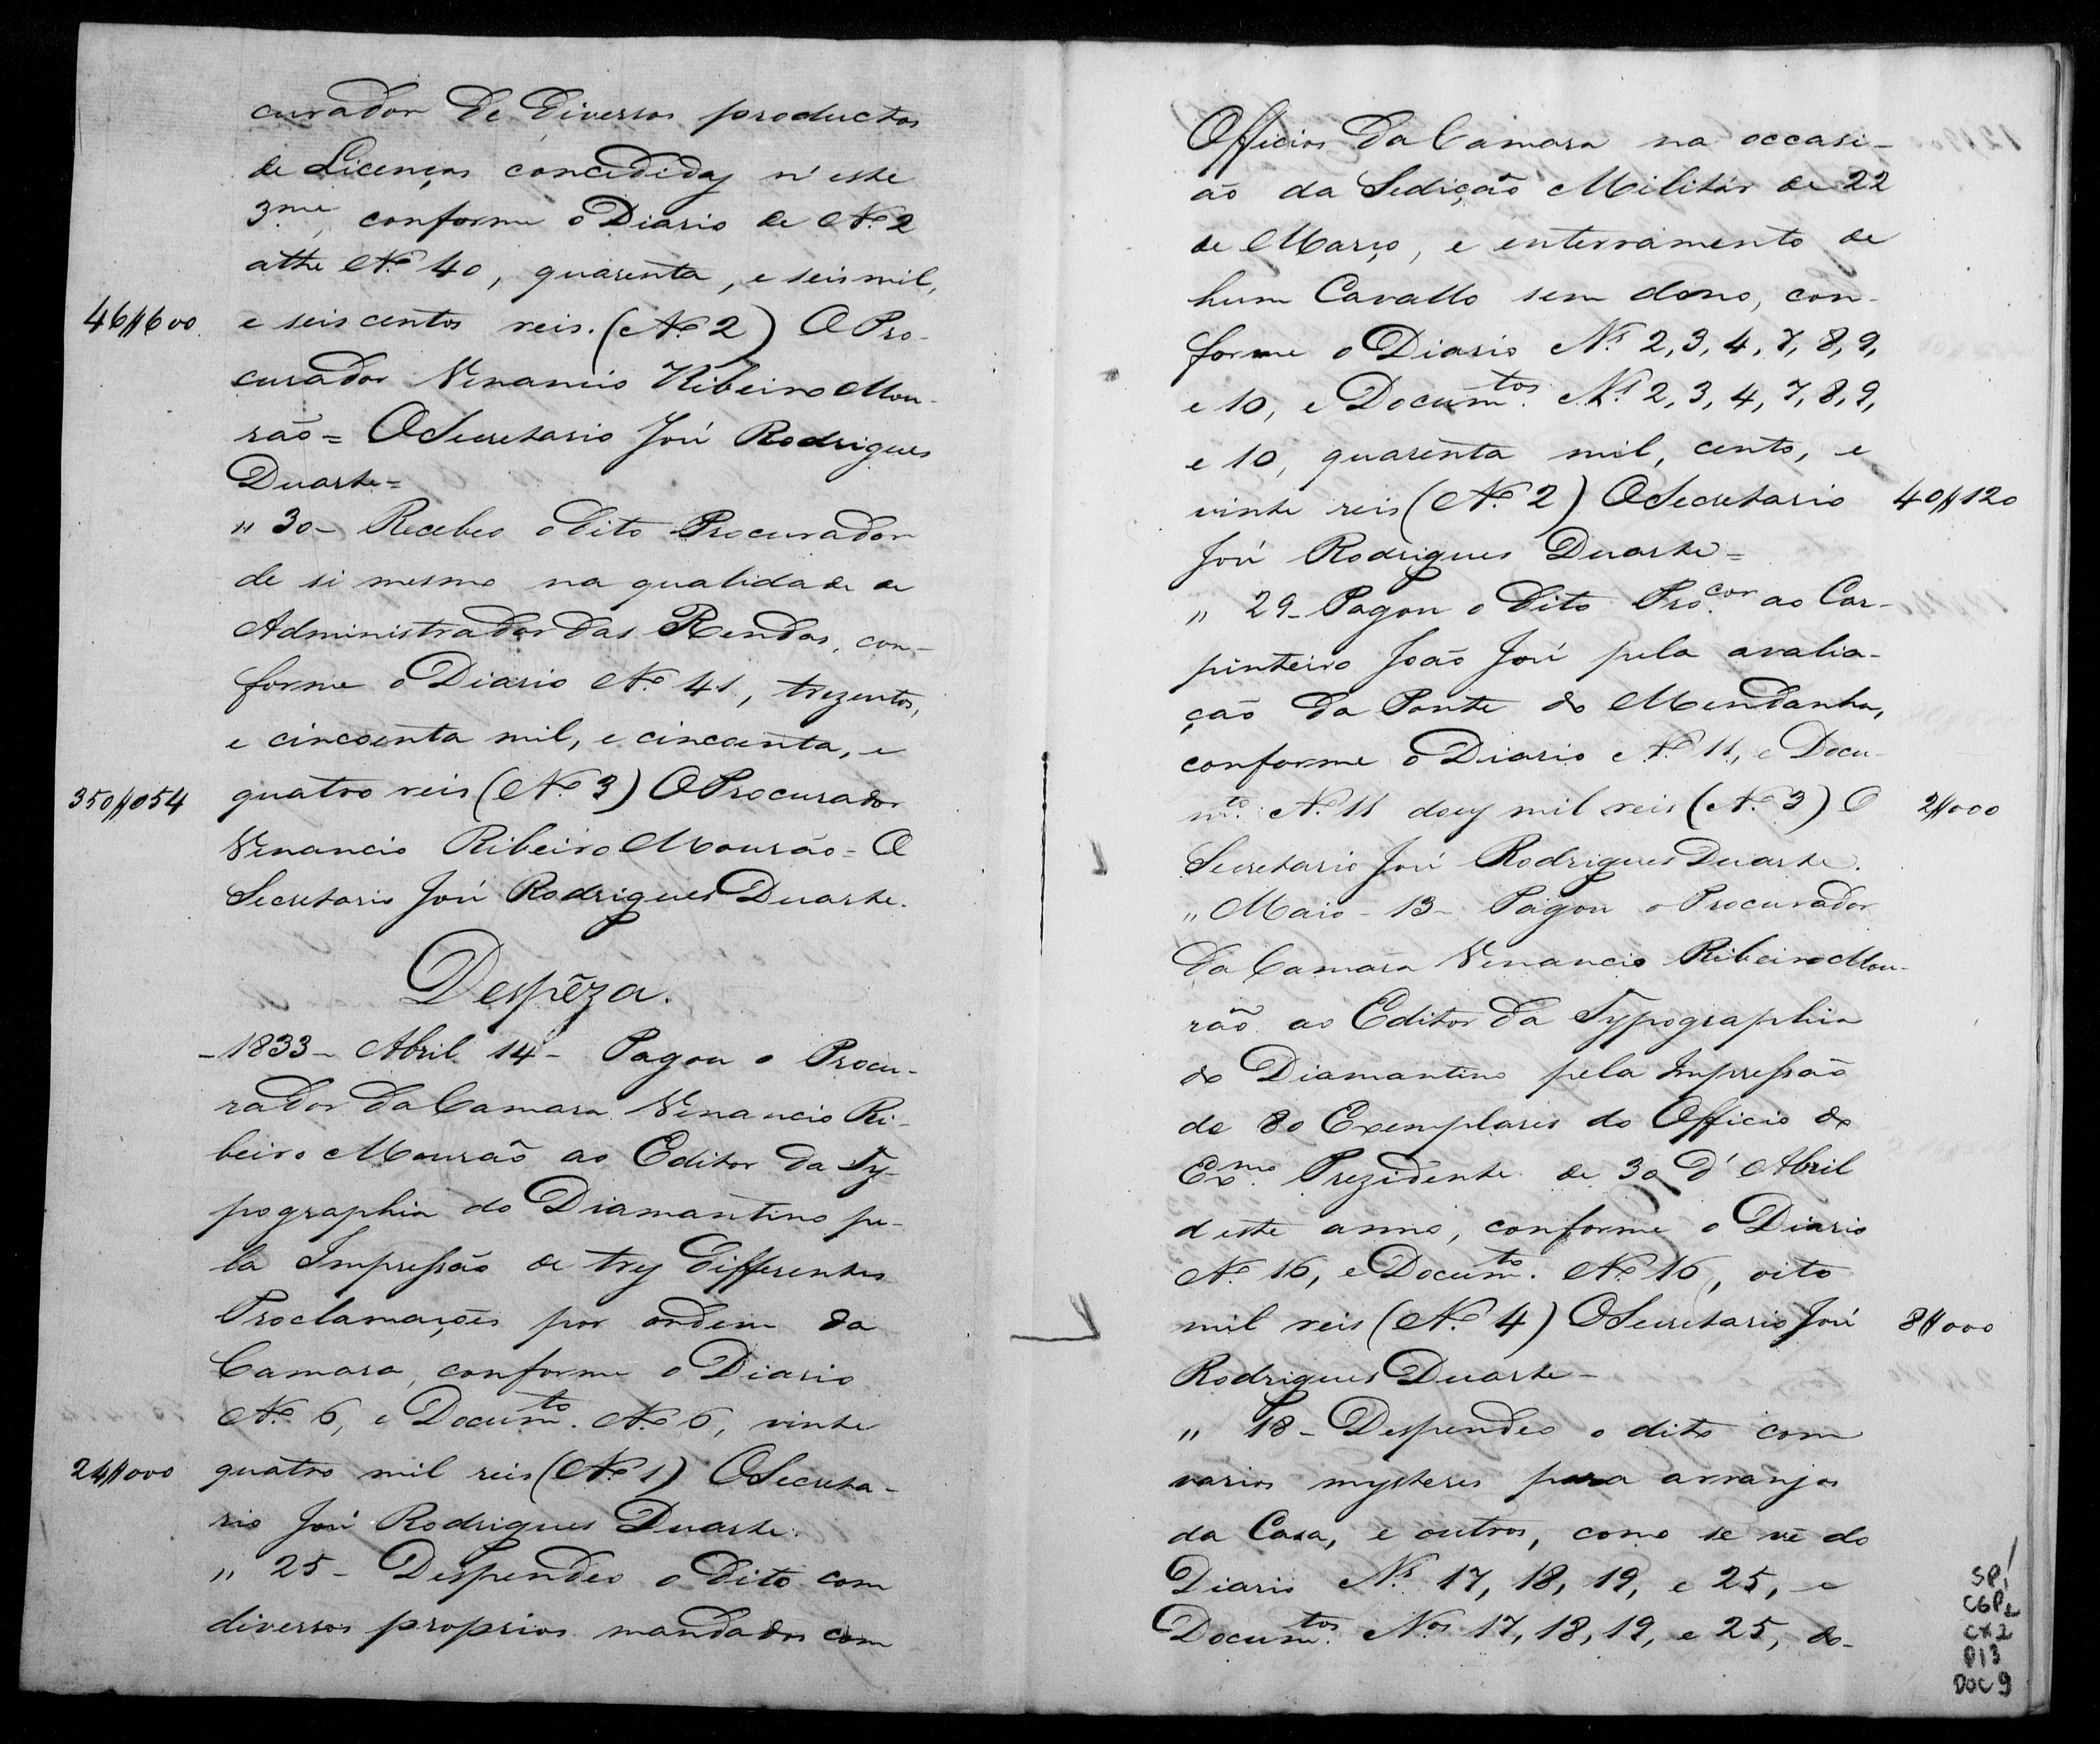 curador de diversos productos
de Licenças concedidas n'este
3.me, conforme o Diario de N.º 2
athe N.º 40, quarenta, e seis mil,
46$600 e seis centos reis. (N.º 2) O Pro-
curador Venancio Ribeiro Mou-
rão = O Secretario José Rodrigues
Duarte =
" 30 - Recebeo o dito Procurador
de si mesmo na qualidade de
Administrador das Rendas, con-
forme o Diario N.º 41, trezentos,
e cincoenta mil, e cincoenta, e
350$054 quatro reis (N.º 3) O Procurador
Venancio Ribeiro Mourão = O
Secretario José Rodrigues Duarte.
Despêza.
- 1833 - Abril 14 - Pagou o Procu-
rador da Camara Venancio Ri-
beiro Mourão ao Editor da Ty-
pographia do Diamantino pe-
la Impressão de trez differentes
Proclamações por ordem da
Camara, conforme o Diario
N.º 6, e Docum.to N.º 6, vinte
24$000 quatro mil reis (N.º 1) O Secreta-
rio José Rodrigues Duarte.
" 25 - Despendeo o dito com
diversos proprios mandados com
Officios da Camara na occasi-
ão da Sedição Militar de 22
de Março, e enterramento de
hum Cavallo sem dono, con-
forme o Diario N.s 2, 3, 4, 7, 8, 9,
e 10, e Docum.tos N.s 2, 3, 4, 7, 8, 9,
e 10, quarenta mil, cento, e
vinte reis (N.º 2) O Secretario 40$120
José Rodrigues Duarte =
" 29 - Pagou o dito Pro.cor ao Car-
pinteiro João José pela avalia-
ção da Ponte do Mendanha,
conforme o Diario N.º 11, e Docu-
m.to N.º 11 douz mil reis (N.º 3) O 2$000
Secretario José Rodrigues Duarte.
" Maio - 13 - Pagou o Procurador
da Camara Venancio Ribeiro Mou-
rão ao Editor da Typographia
do Diamantino pela Impressão
de 80 Exemplares do Officio do
Ex.mo Prezidente de 30 d'Abril
d este anno, conforme o Diario
N.º 16, e Docum.to N.º 16, oito
mil reis (N.º 4) O Secretario José 8$000
Rodrigues Duarte -
" 18 - Despendeo o dito com
varios mysteres para arranjos
da Casa, e outros, como se vê do
Diario N.s 17, 18, 19, e 25, e
Docum.tos N.os 17, 18, 19, e 25, do-
SP
CGP2
CX2
P13
DOC 9